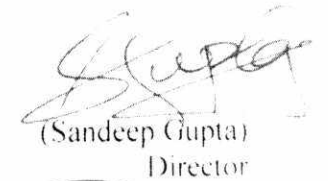 SGupta
(Sandeep Gupta)
Director